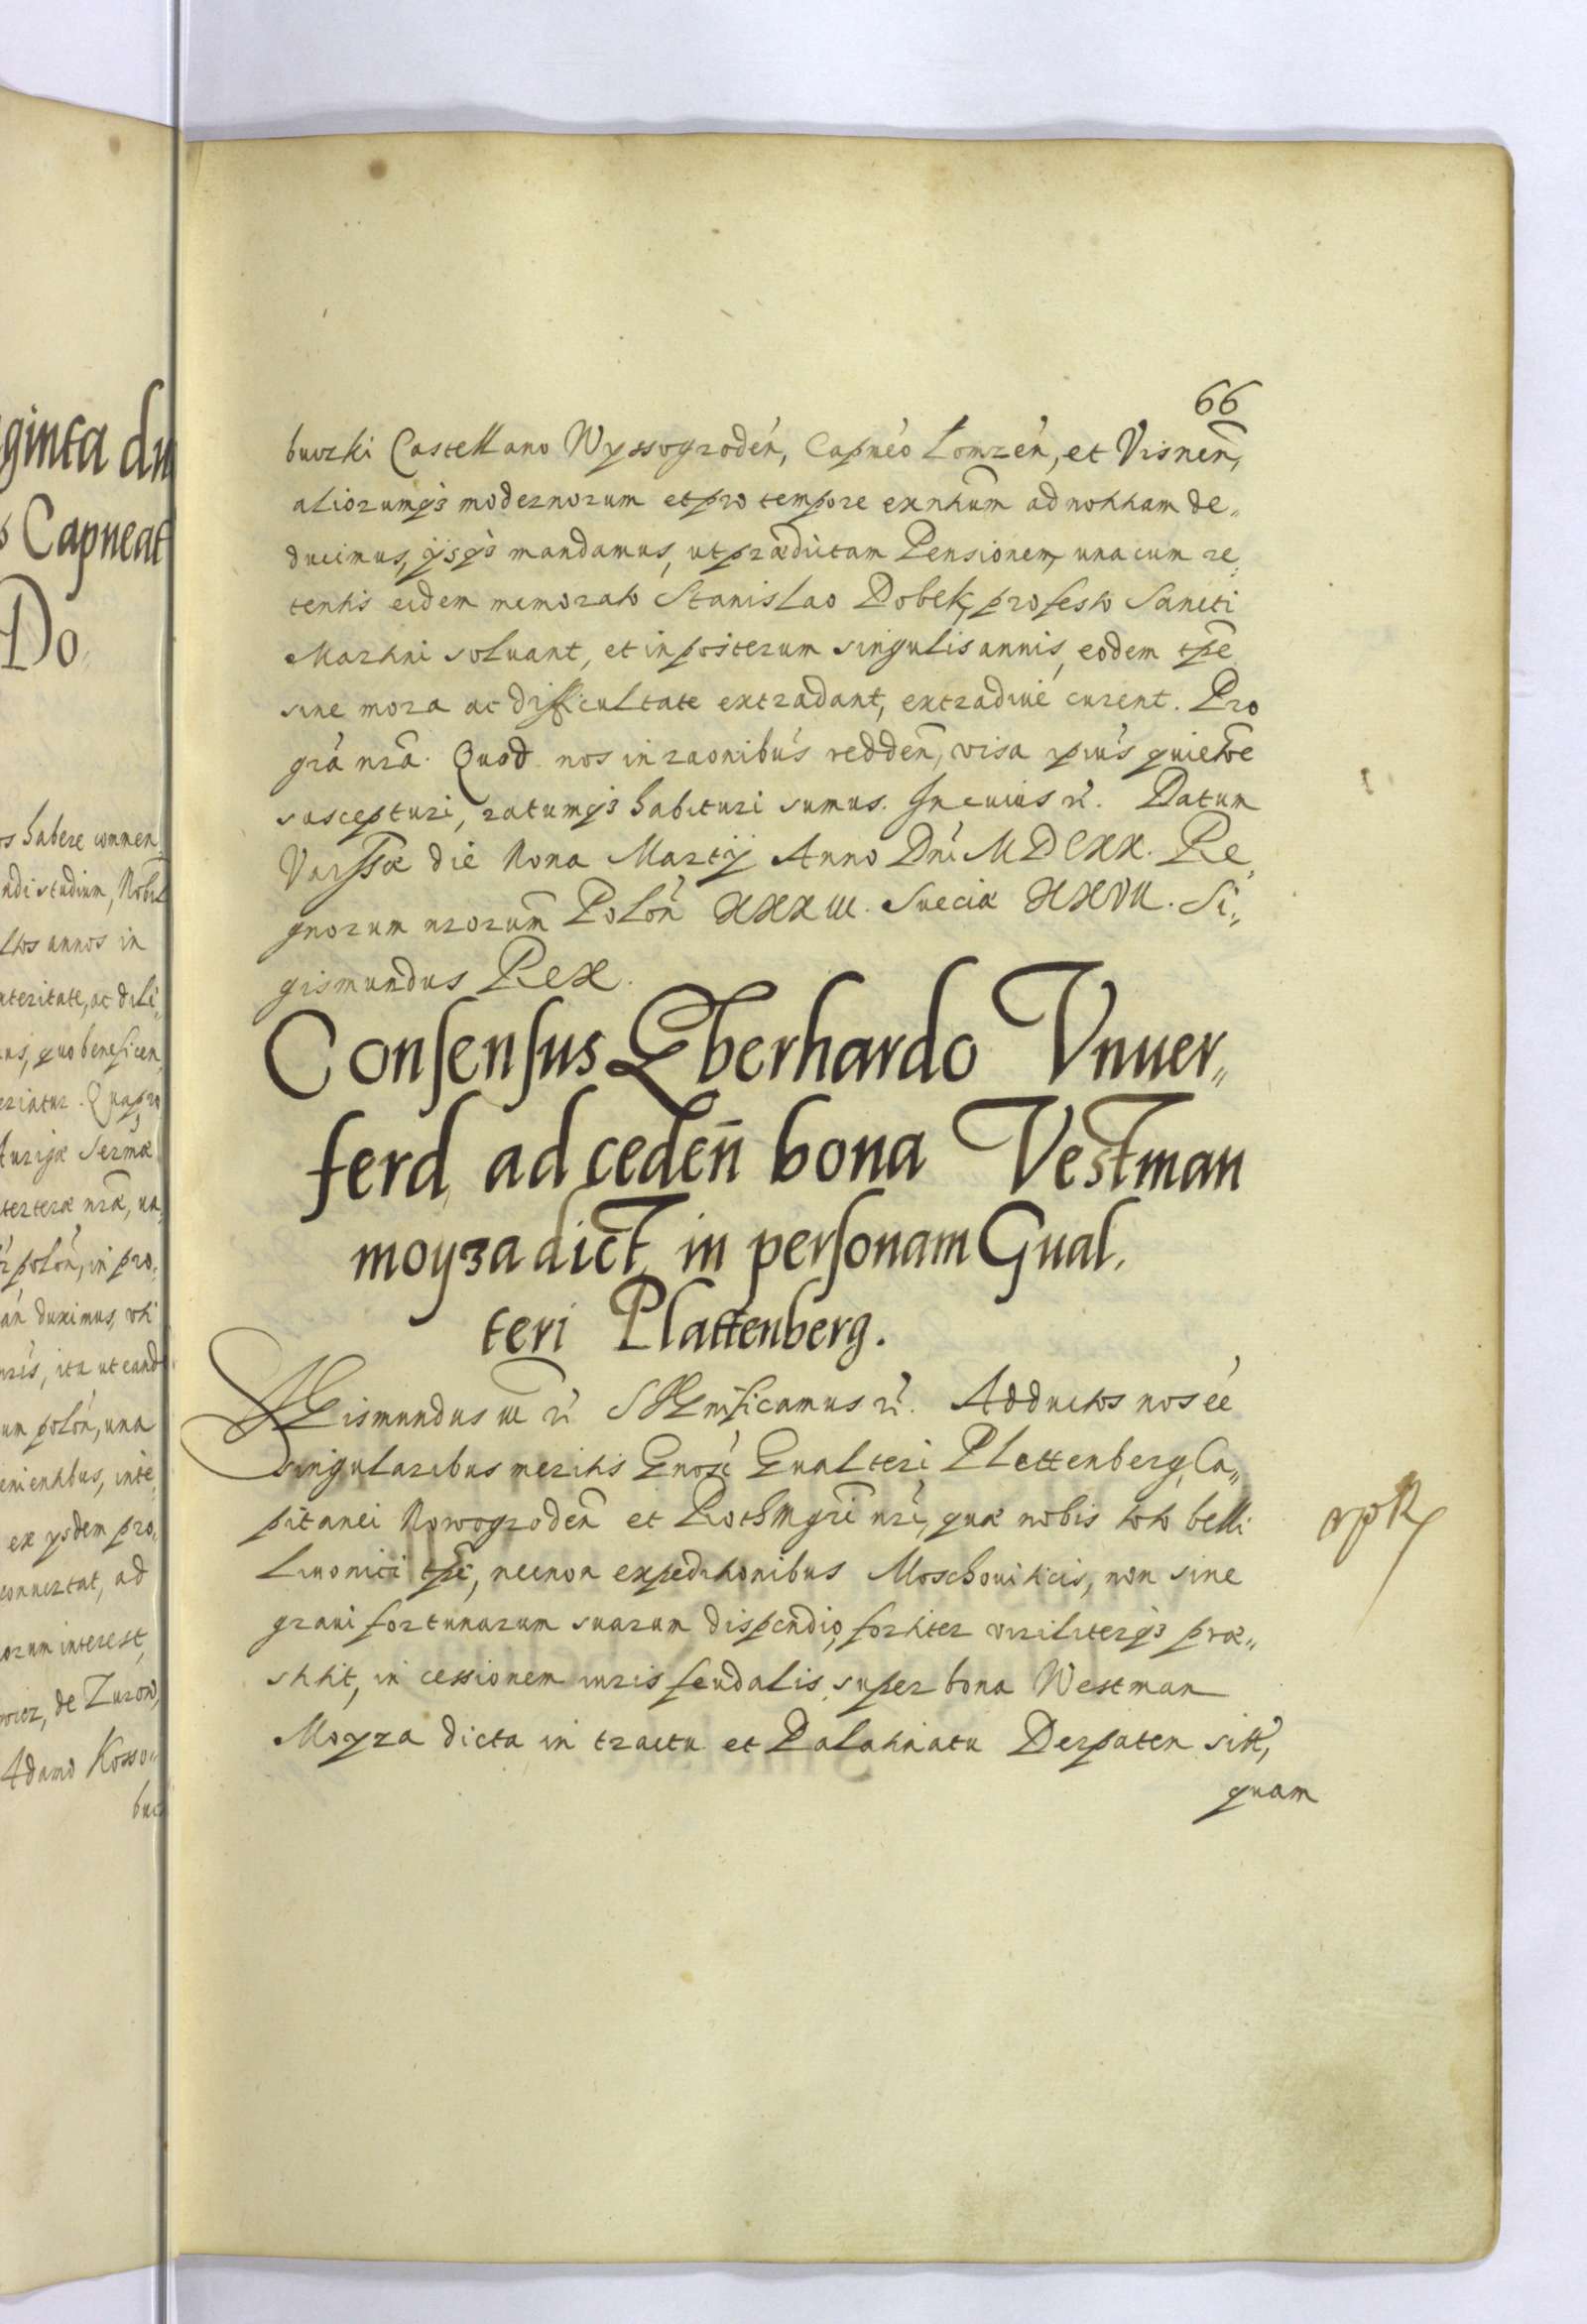 66
buczki Castellano Wyssogroden, Capneo Lomzen, et Visnen,
aliorumqz modernorum et pro tempore exntium ad notitiam de„
ducimus, ijsqz mandamus, ut prædictam Pensionem, una cum re„
tentis eidem memorato Stanislao Dobek, pro festo Sancti
Martini soluant, et in posterum singulis annis, eodem tpe
sine mora ac difficultate extradant, extradiue curent. Pro
gra nra. Quod nos in raonibus redden, visa ipius quietoe
suscepturi, ratumqz habituri sumus. In cuius rei. Datum
Varssæ die Nona Martij Anno Dni MDCXX. Re„
gnorum nrorum Polon XXXIII. Sueciæ XXVII. Si„
gismundus Rex.
Consensus Eberhardo Vnuer„
ferd, ad ceden bona Vestman
moyza dict, in personam Gual„
teri Plattenberg.
Sigismundus III rei Significamus rei. Adductos nos ee
singularibus meritis Gnosi Gualteri Plettenberg, Ca„
pitanei Nowogroden et Rothmgri nri, quæ nobis toto belli
Liuonici tpe, necnon expeditionibus Moschouiticis, non sine
graui fortunarum suarum dispendio, fortiter viriliterqz præ„
stitit, in cessionem iuris feudalis, super bona Westman
Moyza dicta in tractu et Palatinatu Derpaten sitt,
quam
ginta du
Capneat
Do
os habere commen„
ndi studium, Nobil
ltos annos in
nteritate, ac dili„
ns, quo beneficen„
eriatur. Quapro
Aurigæ Sermæ
terteræ nræ, ua„
polon, in pro„
an duximus, vti
nris, ita ut eand
um polon, una
enientibus, inte„
ex ysdem pro„
conuertat, ad
orum interest,
wicz, de Zurow,
Adamo Kosso„
buc